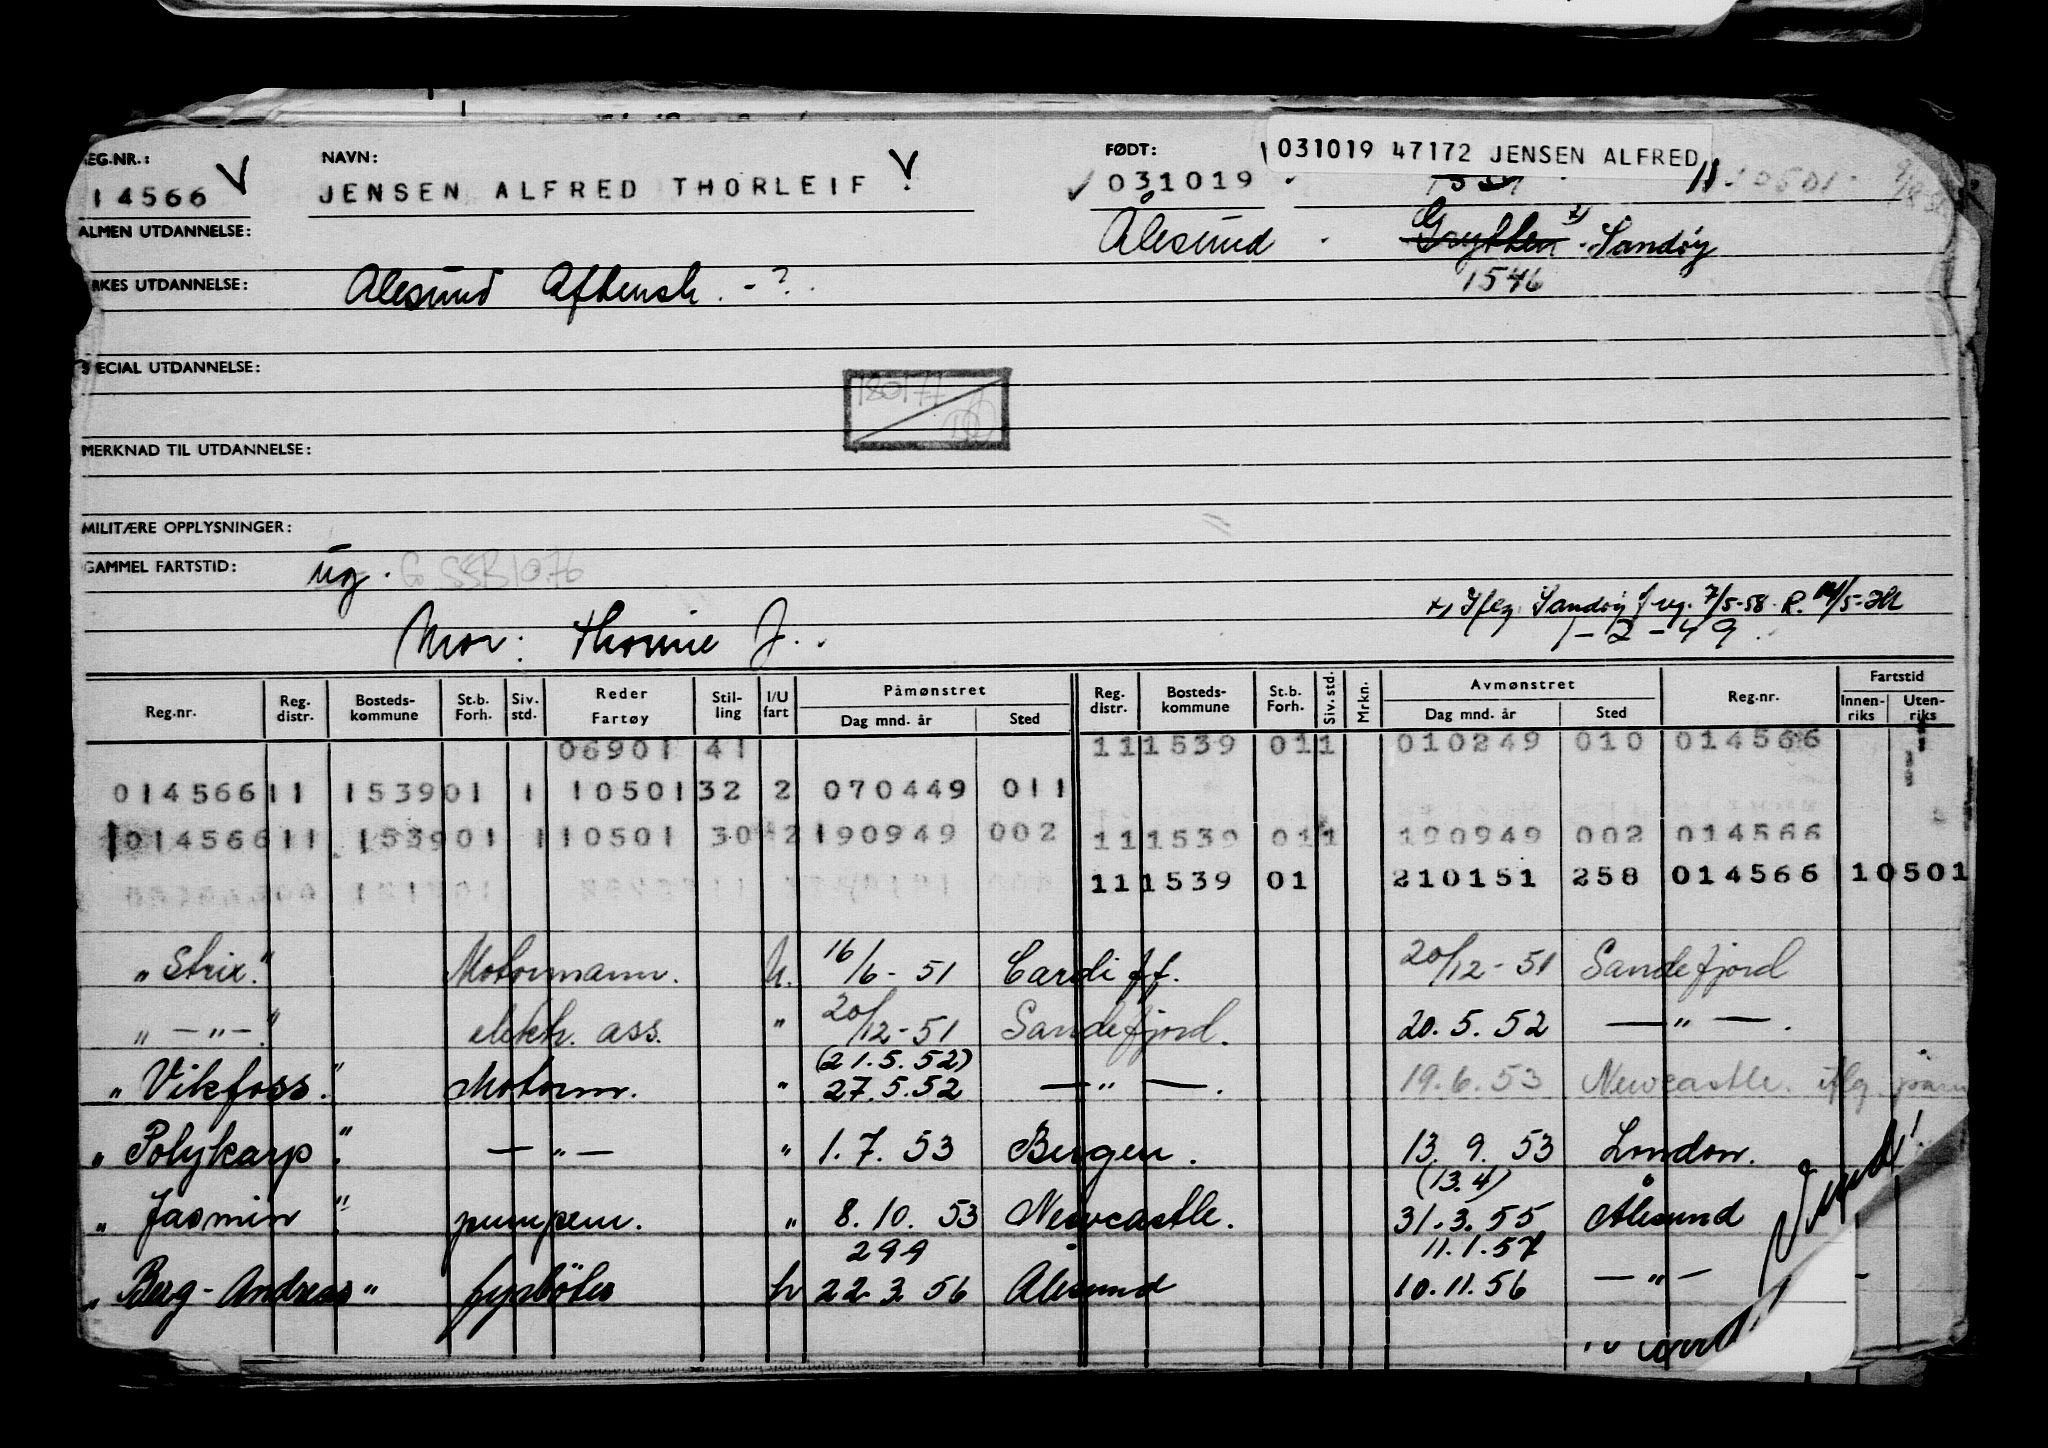 031019 47172 JENSEN ALFRED
EG.NR.: NAVN: FØDT:
14566 V JENSEN ALFRED THORLEIF V 031019
ALMEN UTDANNELSE: Ålesund Grytten Sandøy
1546
RKES UTDANNELSE: Ålesund Aftensk. - ?
SPECIAL UTDANNELSE:
180177
MERKNAD TIL UTDANNELSE:
MILITÆRE OPPLYSNINGER:
GAMMEL FARTSTID: ug. G SSB 1076
Sandøy 7/5-58
1-2-49
Mor: Thorine J.
Reg.nr. Reg. distr. Bosteds-kommune St.b. Forh. Siv. std. Reder Fartøy Stil-ling I/U fart Påmønstret Dag mnd. år Sted Reg. distr. Bosteds-kommune St.b. Forh. Siv. std. Mrkn. Avmønstret Dag mnd. år Sted Reg.nr. Fartstid Innen-riks Uten-riks
06901 41 11 1539 01 1 010249 010 014566
014566 11 1539 01 1 10501 32 2 070449 011
014566 11 1539 01 1 10501 30 2 190949 002 11 1539 01 1 190949 002 014566
11 1539 01 210151 258 014566 10501
"Strix." Motormann. U. 16/6-51 Cardiff. 20/12-51 Sandefjord
" — " — ." elektr. ass. " 20/12-51 Sandefjord. 20.5.52 — " — .
(21.5.52)
"Vikfoss." Motorm. " 27.5.52 — " — . 19.6.53 Newcastle.
"Polykarp". — " — " 1.7.53 Bergen. 13.9.53 London.
(13.4)
"Jasmin". pumpem. " 8.10.53 Newcastle. 31.3.55 Ålesund
299 11.1.57
"Berg-Andreas" fyrbøter U 22.3.56 Ålesund 10.11.56 — " —